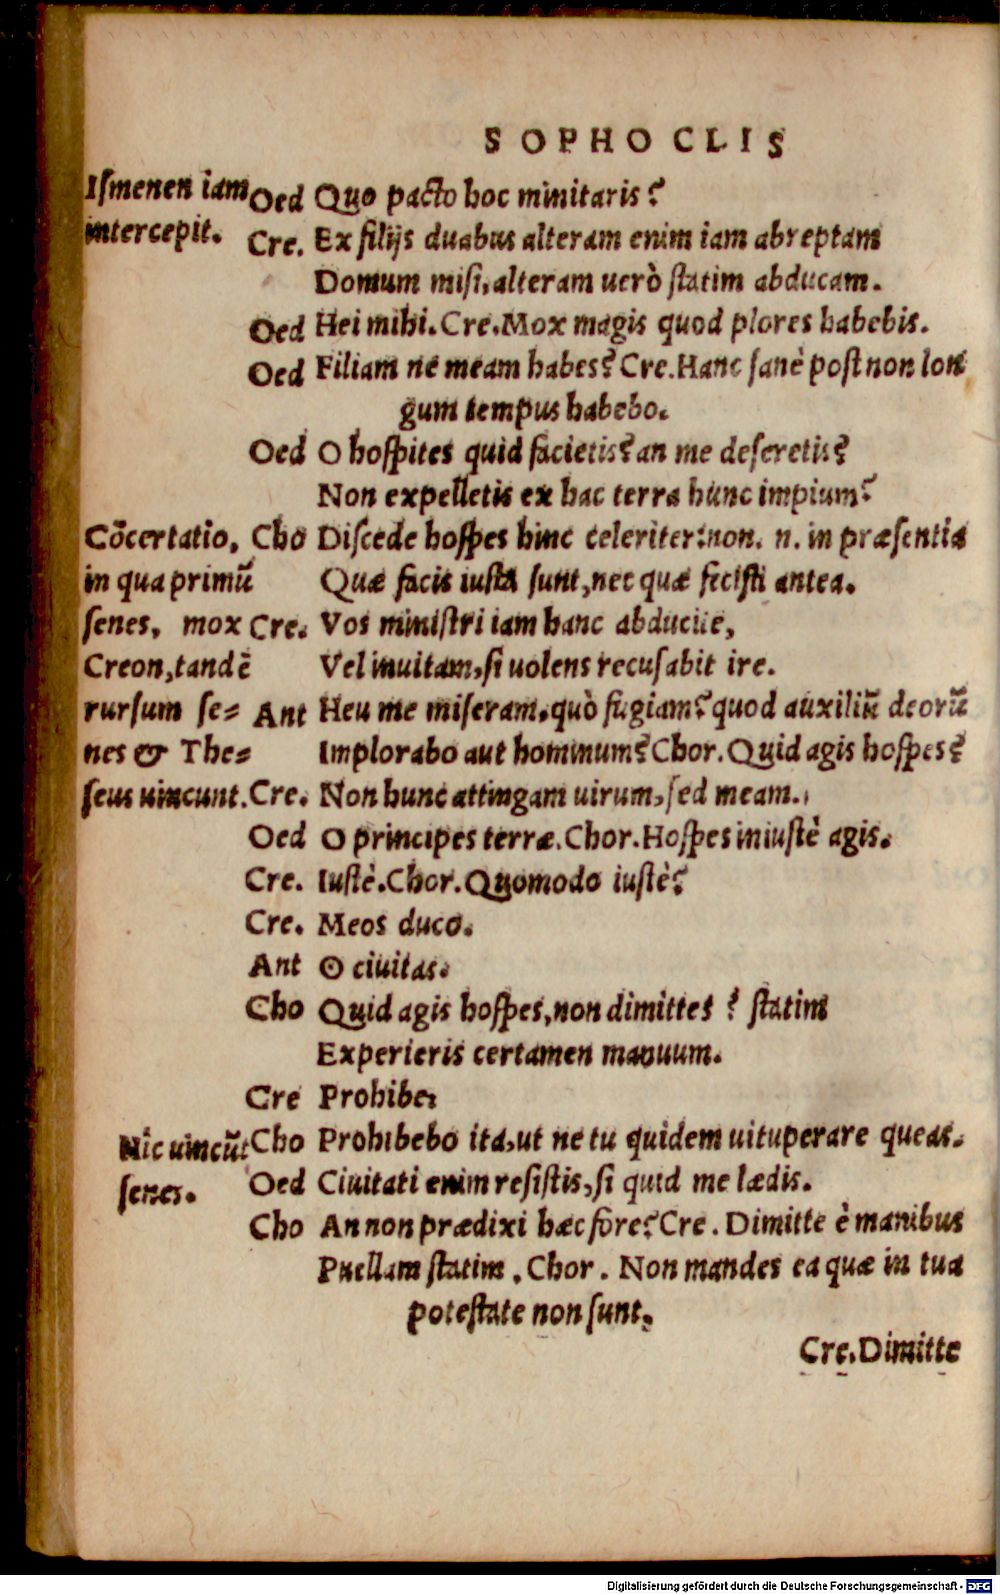 SOPHOCLIS
Iſmenen iam
intercepit.
Oed Quo pacto hoc minitaris?
Cre. Ex filijs duabus alteram enim iam abreptam
Domum miſi, alteram uerò ſtatim abducam.
Oed Hei mihi. Cre. Mox magis quod plores habebis.
Oed Filiam ne meam habes? Cre. Hanc ſanè poſt non lon
gum tempus habebo.
Oed O hoſpites quid facietis? an me deſeretis?
Non expelletis ex hac terra hunc impium?
Cõcertatio,
in qua primũ
ſenes, mox
Creon, tandẽ
rurſum ſe=
nes & The=
ſeus uincunt.
Cho Diſcede hoſpes hinc celeriter: non. n. in præſentia
Quæ facis iuſta ſunt, nec quæ feciſti antea.
Cre. Vos miniſtri iam hanc abducite,
Vel inuitam, ſi uolens recuſabit ire.
Ant Heu me miſeram, quò fugiam? quod auxiliũ deorũ
Implorabo aut hominum? Chor. Quid agis hoſpes?
Cre. Non hunc attingam uirum, ſed meam.
Oed O principes terræ. Chor. Hoſpes iniuſtè agis.
Cre. Iuſtè. Chor. Quomodo iuſtè?
Cre. Meos duco.
Ant O ciuitas.
Cho Quid agis hoſpes, non dimittes? ſtatim
Experieris certamen manuum.
Cre Prohibe.
Hic uincũt
ſenes.
Cho Prohibebo ita, ut ne tu quidem uituperare queas.
Oed Ciuitati enim reſiſtis, ſi quid me lædis.
Cho An non prædixi hæc fore? Cre. Dimitte è manibus
Puellam ſtatim. Chor. Non mandes ea quæ in tua
poteſtate non ſunt.
Cre. Dimitte
Digitalisierung gefördert durch die Deutsche Forschungsgemeinschaft - DFG